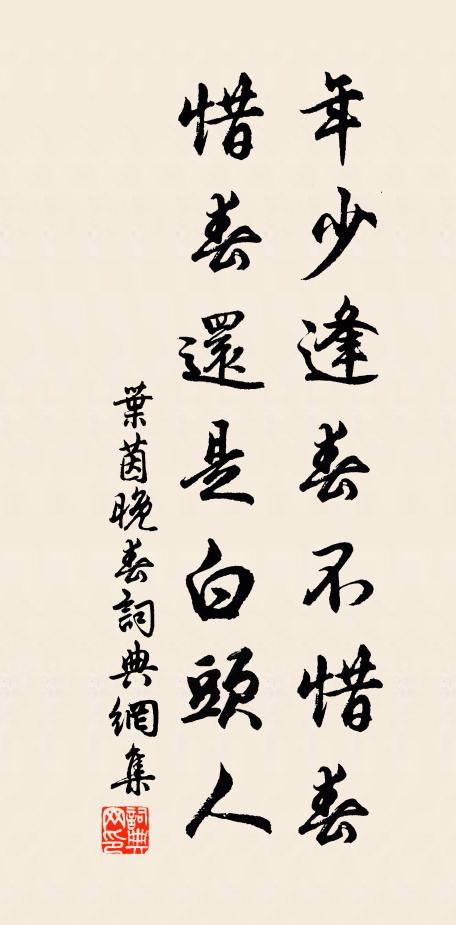 年少逢春不惜春
惜春還是白頭人
葉茵晚春詞典網集
詞典网印